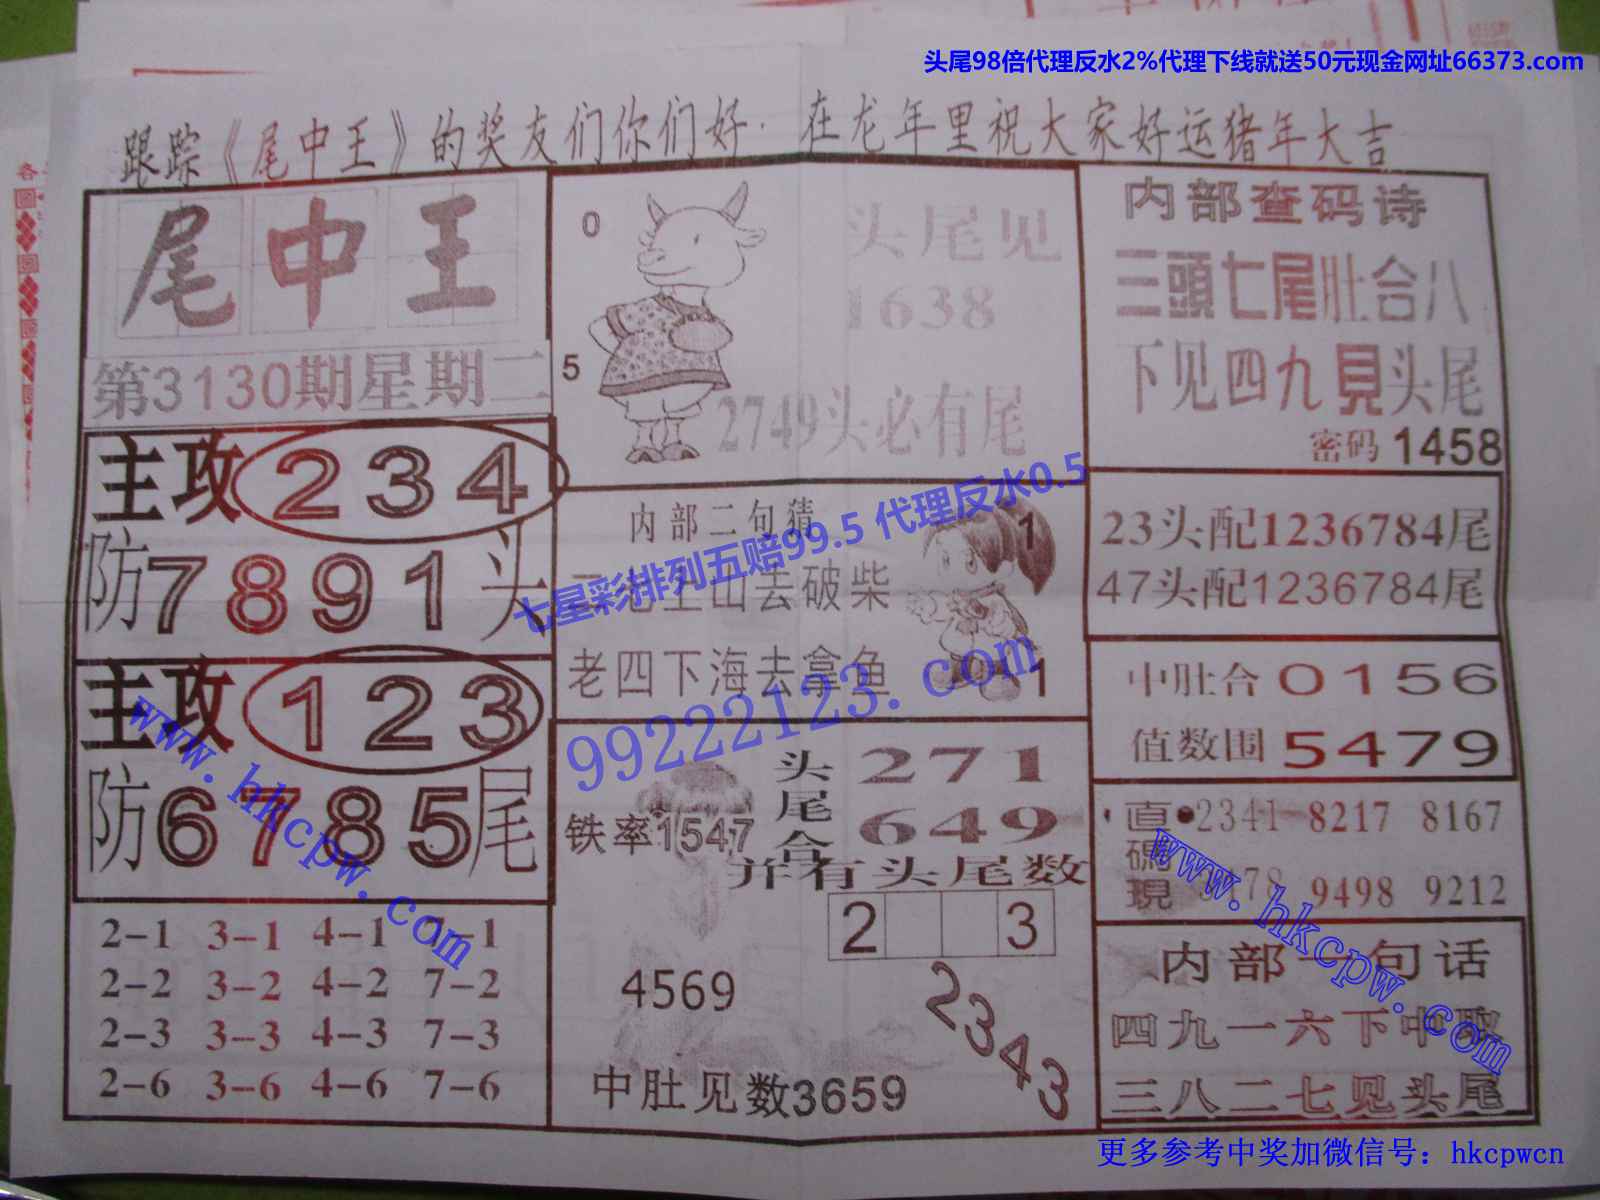 头尾98倍代理反水2%代理下线就送50元现金网址66373.com
跟踪《尾中王》的奖友们你们好.在龙年里祝大家好运猪年大吉
尾中王
第3130期星期二
主攻234
防7891头
主攻123
防6785尾
2-1 3-1 4-1 7-1
2-2 3-2 4-2 7-2
2-3 3-3 4-3 7-3
2-6 3-6 4-6 7-6
0
5
头尾见
1638
2749头必有尾
内部二句猜
七星彩排列五赔99.5 代理反水0.5
上山去破柴
老四下海去拿鱼
1
1
99222123.com
头尾合
271
649
铁率1547
并有头尾数
2 3
4569
2343
中肚见数3659
内部查码诗
三頭七尾肚合八
下见四九見头尾
密码1458
23头配1236784尾
47头配1236784尾
中肚合0156
值数围5479
直碼現
2341 8217 8167
78 9498 9212
内部一句话
四九一六下中取
三八二七见头尾
www.hkcpw.com
www.hkcpw.com
更多参考中奖加微信号：hkcpwcn